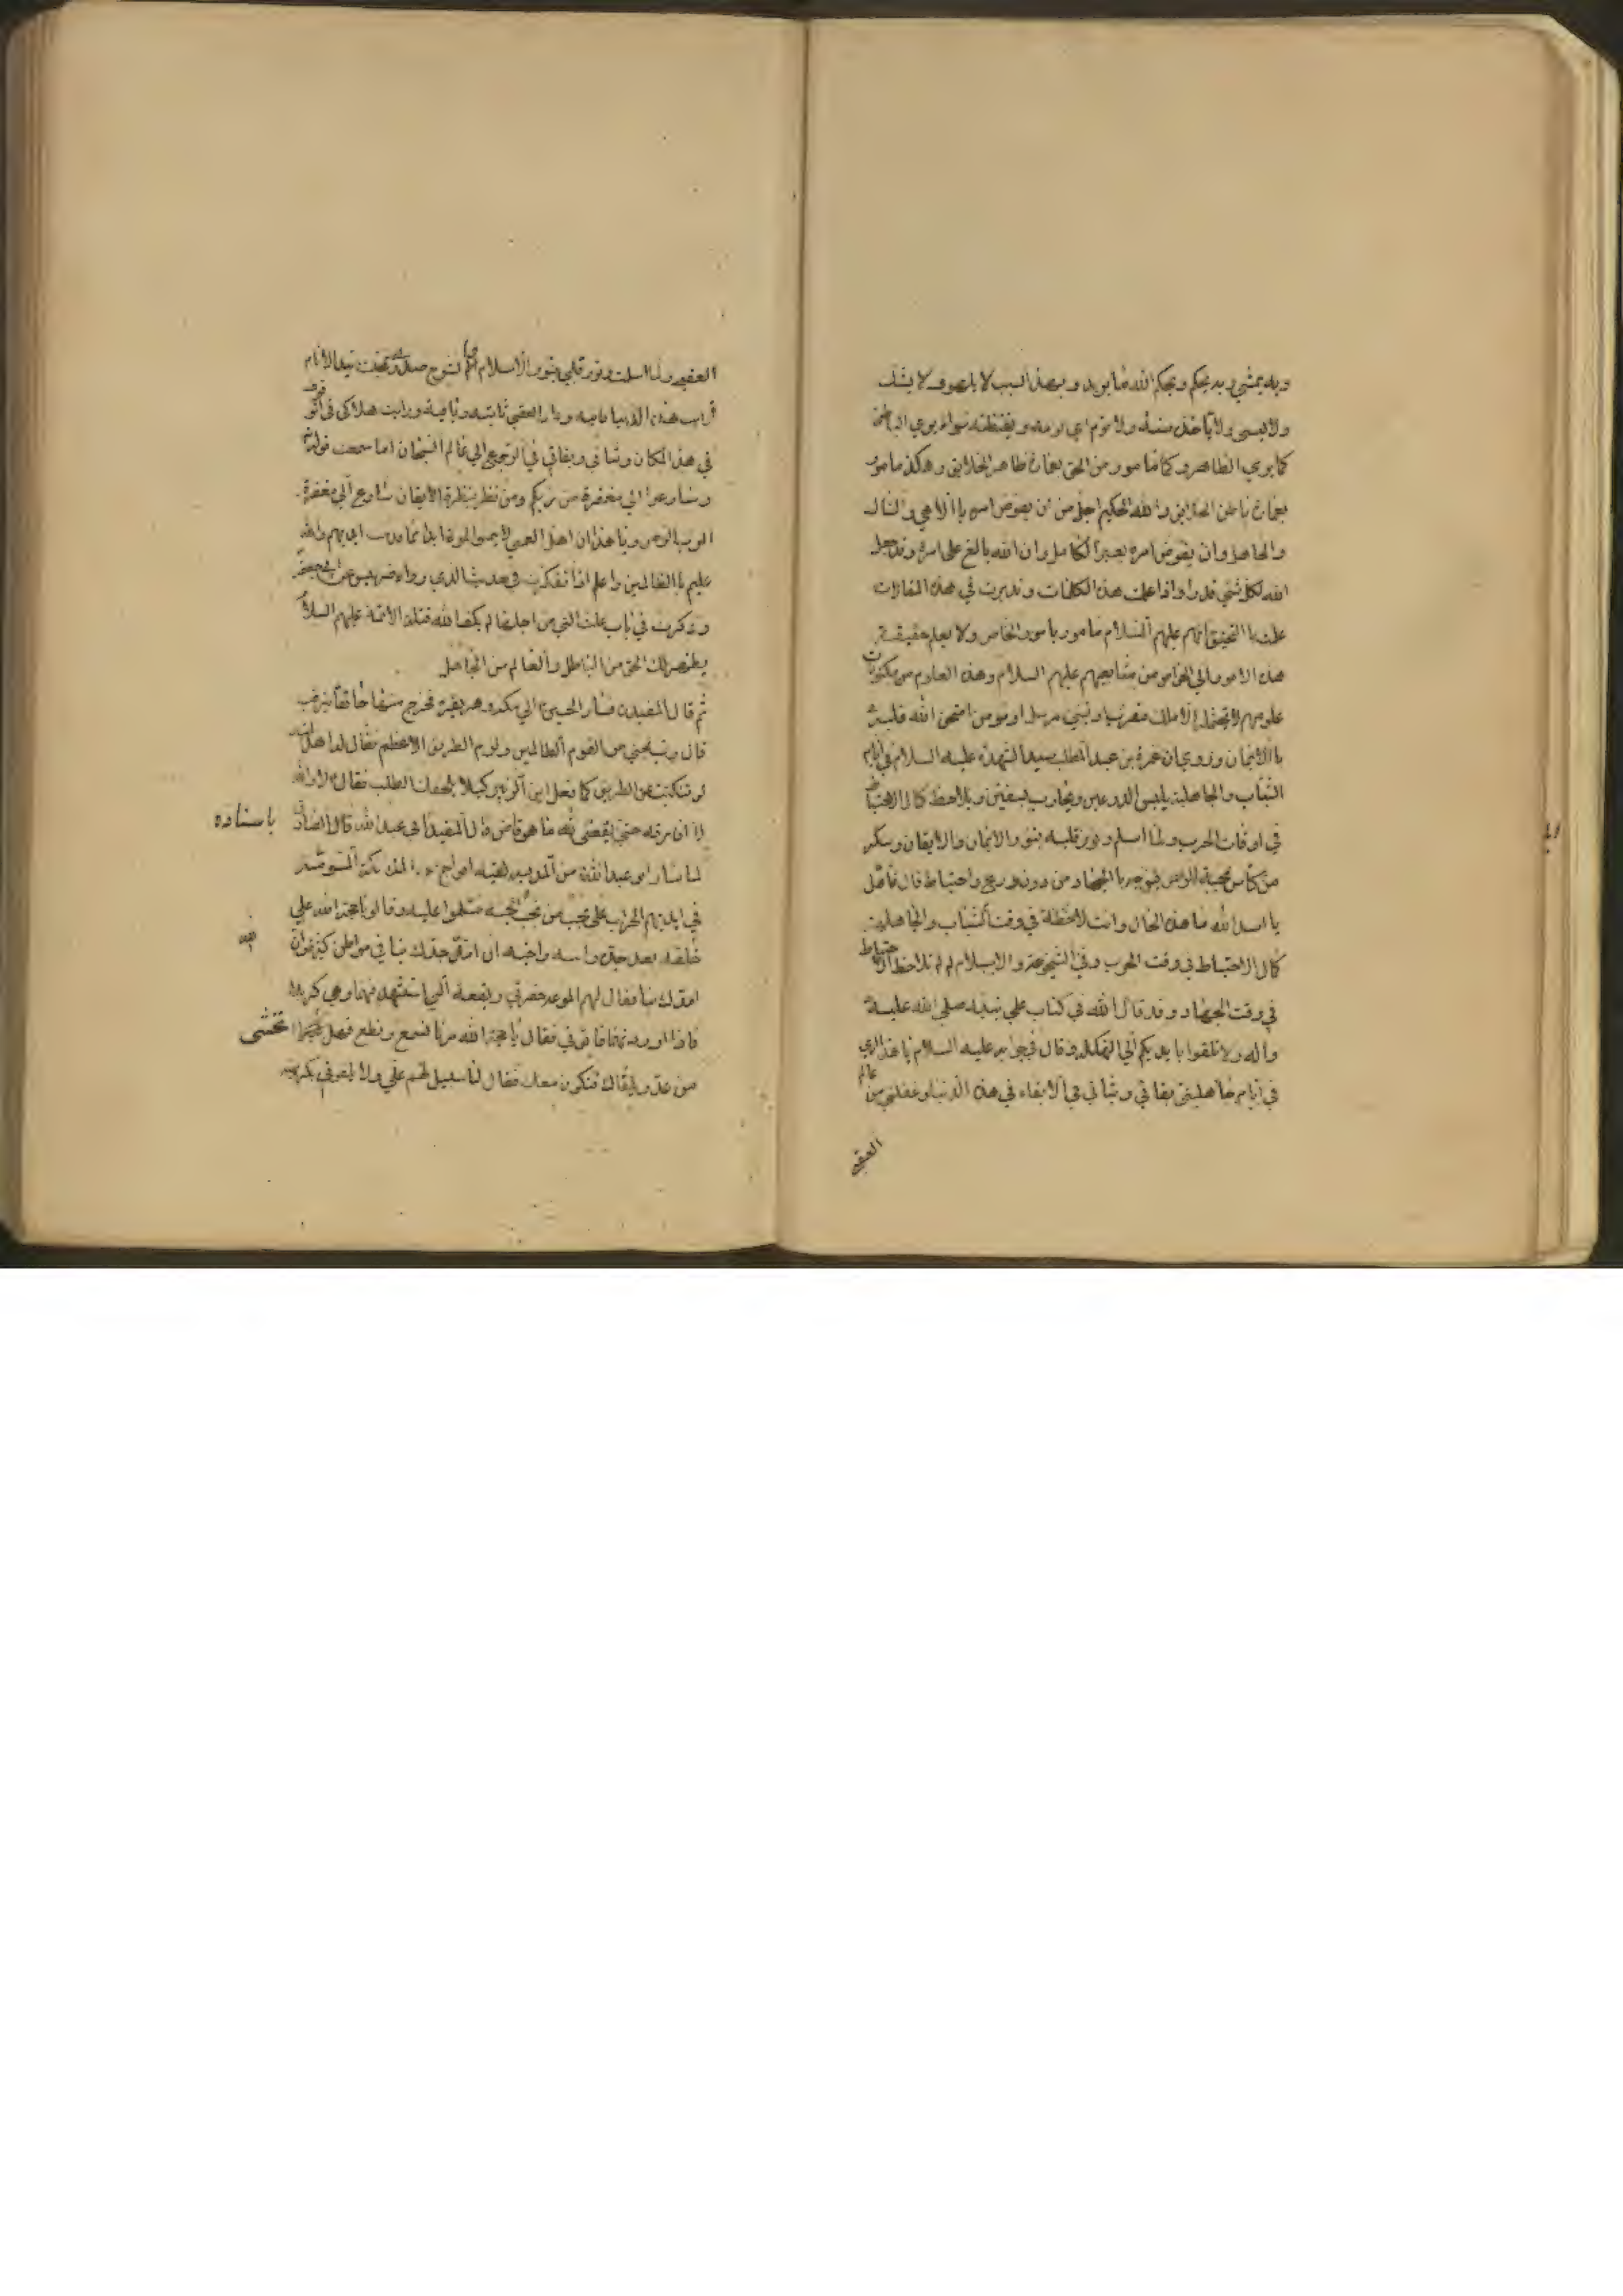 وبه يمشي وبه يحكم ويحكم الله ما يريد وبهذا السبب لا يلهو ولا يشك
ولا ينسى ولا يأخذه سنة ولا نوم اي نومه ويقظته سواء يري الباطن
كما يري الظاهر وكما مامور من الحق بعمارة ظاهر الخلايق وهكذا مامور
بعمارة باطن الخلايق والله الحكيم اجل من ان يفوض امره باالاهي والناس
والجاهل وان يفوض امره بغير الكامل وان الله بالغ على امره وقد جعل
الله لكل شئ قدرا واذا علمت هذه الكلمات وتدبرت في هذه المقالات
علمت باالتحقيق انهم عليهم السلام مامور بامور الخاص ولا يعلم حقيقة
هذه الامور الي الخواص من متابعيهم عليهم السلام وهذه العلوم من مكنونات
علومهم لا يتحمله الا ملك مقرب او نبي مرسل او مومن امتحن الله قلبه
باالايمان وروي ان حمزة بن عبد المطلب سيد الشهداء عليه السلام في ايام
الشباب والجاهلية يلبس الدرعين ويحارب بسيفين ويلاحظ كمال الاحتياط
في اوقات الحرب ولما اسلم ونور قلبه بنور الايمان والايقان وسكر
من كأس محبة الرحمن توجه باالجهاد من دون درع واحتياط قال قائل
يا اسد الله ما هذه الحال وانت لاحظة في وقت الشباب والجاهلية
كمال الاحتياط في وقت الحرب وفي الشيخوخة والاسلام لم لم تلاحظ الاحتياط
في وقت الجهاد وقد قال الله في كتاب علي نبيه صلي الله عليه
وآله ولا تلقوا بايديكم الي التهلكة وقال في جوابه عليه السلام يا هذا اري
في ايام جاهليتي بقائي وثباتي في الابقاء في هذه الدنيا وغفلتي من عالم
العقبى
العقبى ولما اسلمت ونور قلبي بنور الاسلام انشرح صدري وتيقنت بيد الانام
رايت هذه الدنيا فانيه ودار العقبي ثابته وباقية ورايت هلاكى في توقف
في هذا المكان وثباتي وبقائي في الرجوع الي عالم السبحان اما سمعت قوله
وسارعوا الي مغفرة من ربكم ومن نظر بنظرة الايقان سارع الي مغفرة
الرب الرحمن ويا هذا ان اهل العمي لا يتمنوا الموت ابدا بما قدمت ايديهم والله
عليم باالظالمين واعلم اذا تفكرت في حديث الذي رواه ضريس عن ابي جعفر
وذكرت في باب علت التي من اجلها لم يكف الله قتلة الائمة عليهم السلام
يظهر لك الحق من الباطل والعالم من الجاهل
ثم قال المفيد فسار الحسين الي مكة وهو يقرء فخرج منها خائفا يترقب
قال رب نجني من القوم الظالمين ولزم الطريق الاعظم فقال له اهل بيته
لو تنكبت عن الطريق كما فعل ابن الزبير كيلا يلحقك الطلب فقال لا والله
لا افارقه حتى يقضى الله ما هو قاض قال المفيد باسناده الى عبد الله قال الصادق
لما سار ابو عبد الله من المدينه لقيته افواج من الملائكة المسومة
في ايديهم الحراب على نجب من نجب الجنة فسلموا عليه وقالو يا حجة الله علي
خلقه بعد جده وابيه واخيه ان الله امد جدك بنا في مواطن كثيرة وان
امدك بنا فقال لهم الموعد حفرتي وبقعة التي استشهد فيها وهي كربلا
فاذا اوردتها فاتوني فقال يا حجة الله مرنا نسمع ونطع فهل تخشى
من عدو يلقاك فنكون معك فقال لا سبيل لهم علي ولا يلقوني بكريهه